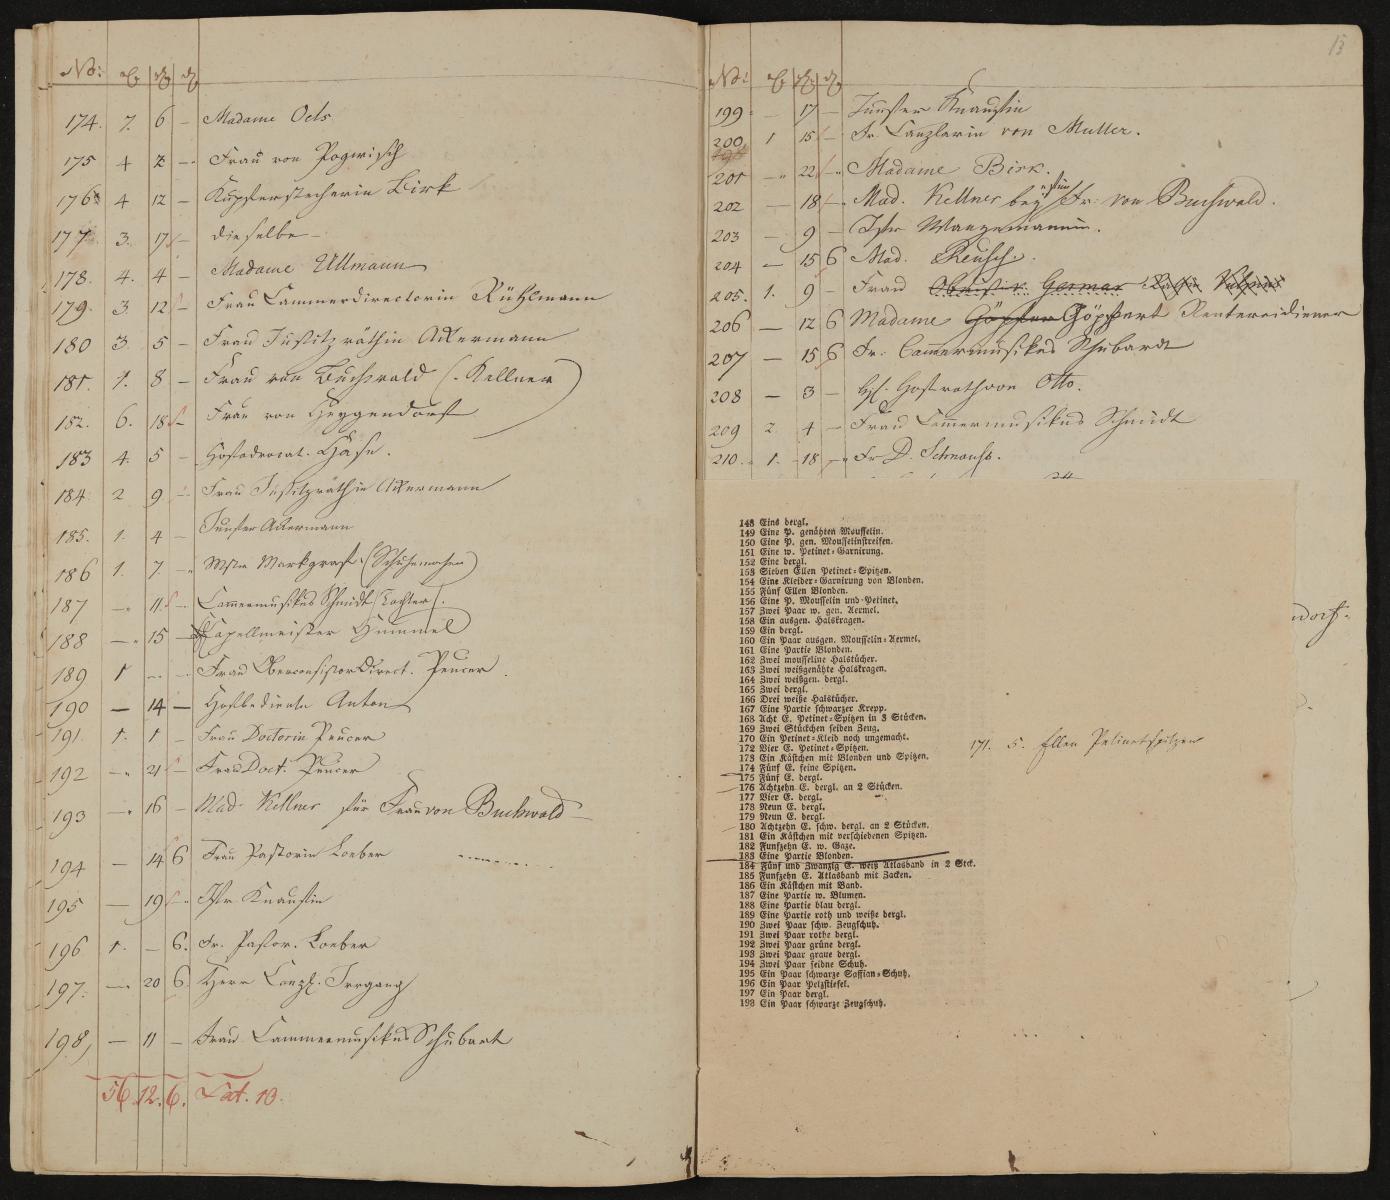 No:
174. 7. 6 – Madame Oels
175 4 2 – Frau von Pogwisch
176 4 12 – Kupferstecherin Birk
177. 3. 17 – dieselbe –
178. 4. 4 – Madame Ullmann
179. 3. 12 – Frau Cammerdirectorin Rühlmann
180 3. 5 – Frau Justitzräthin Ackermann
181. 1. 8 – Frau von Buchwald (Kellner)
182. 6. 18 – Frau von Heygendorf
183 4. 5 – Hofadvocat Hase.
184. 2 9 – Frau Justitzräthin Ackermann
185. 1. 4 – Junfer Ackermann
186 1. 7 – Mstr Markgraf (Schuhmacher)
187 – 11 – Cammermusikus Schmidt (Tochter).
188 – 15 – Capellmeister Hummel
189 1 – – Frau Oberconsistor Direct. Peucer.
190 – 14 – Hofbediente Anton
191. 1. 1 – Frau Doctorin Peucer
192 – 21 – Frau Doct. Peucer
193 – 16 – Mad. Kellner für Frau von Buchwald –
194 – 14 6 Frau Pastorin Loeber
195 – 19 – Jfr. Knauslin
196 1. – 6. Fr. Pastor. Loeber
197. – 20 6 Herr Canzl. Irrgang
198, – 11 – Frau Cammermusikus Schubart
56. 12. 6. Lat. 13.
13
No:
199 – 17 – Junfer Knauslin
200, 1 15 – Fr. Canzlarin von Muller.
201 – 22 – Madame Birk.
202 – 18 – Mad. Kellner bey Fr: von Buchwald.
203 – 9 – Jfr
204 – 15 6 Mad. Reusch.
205. 1. 9 – Frau Obrist v. Germar Räthin Vulpius
206 – 12 6 Madame Göpfert Göpffart Rentereidiener
207 – 15 6 Fr: Cammermusikus Schubardt
208 – 3 – Hofrath von Otto.
209 2. 4 – Frau Cammermusikus Schmidt
210. 1. 18 – Fr D. Schnauss.
148 Eins dergl.
149 Eine P. genähten Mousselin.
150 Eine P. gen. Mousselinstreifen.
151 Eine w. Petinet-Garnirung.
152 Eine dergl.
153 Sieben Ellen Petinet-Spitzen.
154 Eine Kleider-Garnirung von Blonden.
155 Fünf Ellen Blonden.
156 Eine P. Mousselin und Petinet.
157 Zwei Paar w. gen. Aermel.
158 Ein ausgen. Halskragen.
159 Ein dergl.
160 Ein Paar ausgen. Mousselin-Aermel.
161 Eine Partie Blonden.
162 Zwei mousseline Halstücher.
163 Zwei weißgenähte Halskragen.
164 Zwei weißgen. dergl.
165 Zwei dergl.
166 Drei weiße Halstücher.
167 Eine Partie schwarzer Krepp.
168 Acht E. Petinet-Spitzen in 3 Stücken.
169 Zwei Stückchen seiden Zeug.
170 Ein Petinet-Kleid noch ungemacht.
171. 5. Ellen Petinetspitzen
172 Vier E. Petinet-Spitzen.
173 Ein Kästchen mit Blonden und Spitzen.
174 Fünf E. feine Spitzen.
175 Fünf E. dergl.
176 Achtzehn E. dergl. an 2 Stücken.
177 Vier E. dergl.
178 Neun E. dergl.
179 Neun E. dergl.
180 Achtzehn E. schw. dergl. an 2 Stücken.
181 Ein Kästchen mit verschiedenen Spitzen.
182 Funfzehn E. w. Gaze.
183 Eine Partie Blonden.
184 Fünf und Zwanzig E. weiß Atlasband in 2 Stck.
185 Funfzehn E. Atlasband mit Zacken.
186 Ein Kästchen mit Band.
187 Eine Partie w. Blumen.
188 Eine Partie blau dergl.
189 Eine Partie roth und weiße dergl.
190 Zwei Paar schw. Zeugschuh.
191 Zwei Paar rothe dergl.
192 Zwei Paar grüne dergl.
193 Zwei Paar graue dergl.
194 Zwei Paar seidne Schuh.
195 Ein Paar schwarze Saffian-Schuh.
196 Ein Paar Pelzstiefel.
197 Ein Paar dergl.
198 Ein Paar schwarze Zeugschuh.